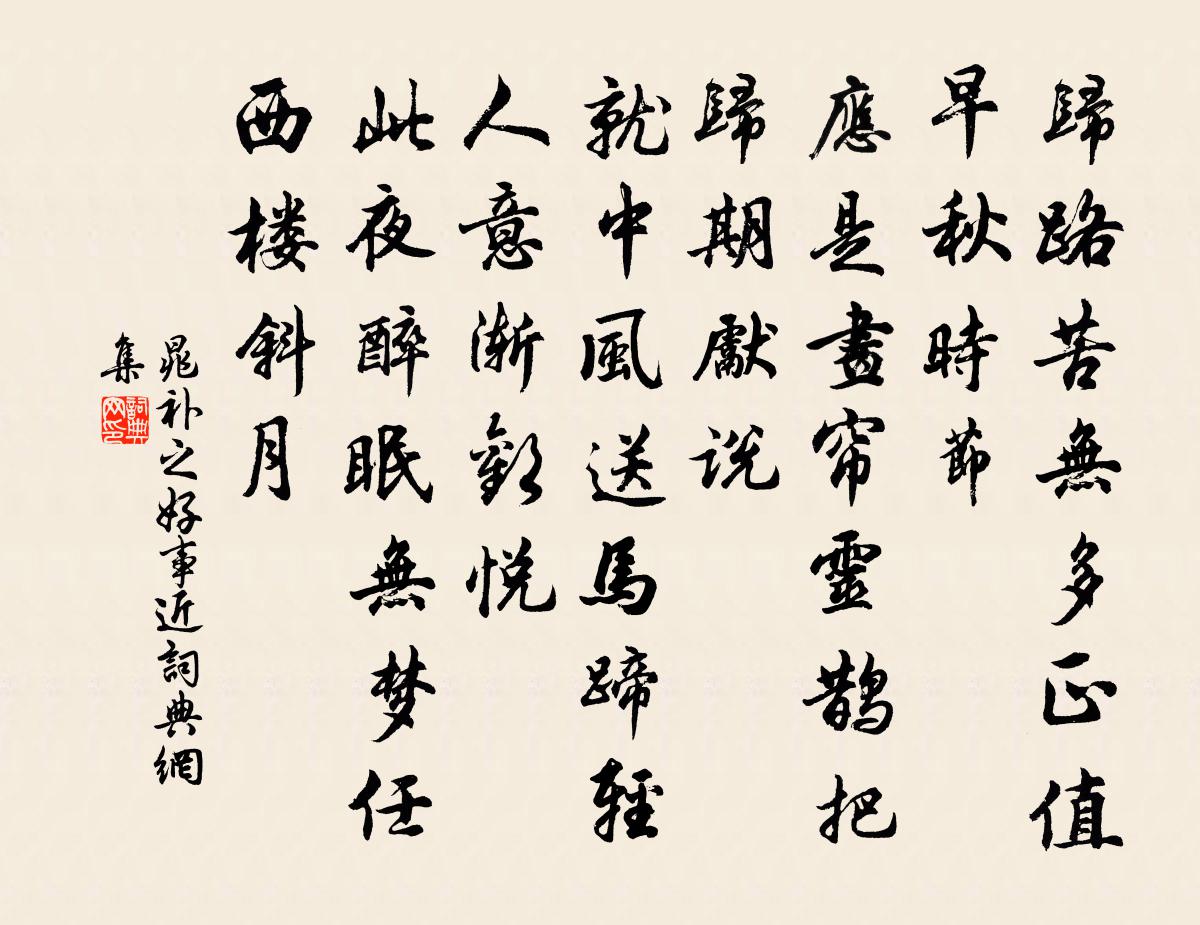 歸路苦無多正值
早秋時節
應是畫帘靈鵲把
歸期獻說
就中風送馬蹄輕
人意漸歡悅
此夜醉眠無梦任
西楼斜月
晁补之好事近詞典網
集
詞典
网印